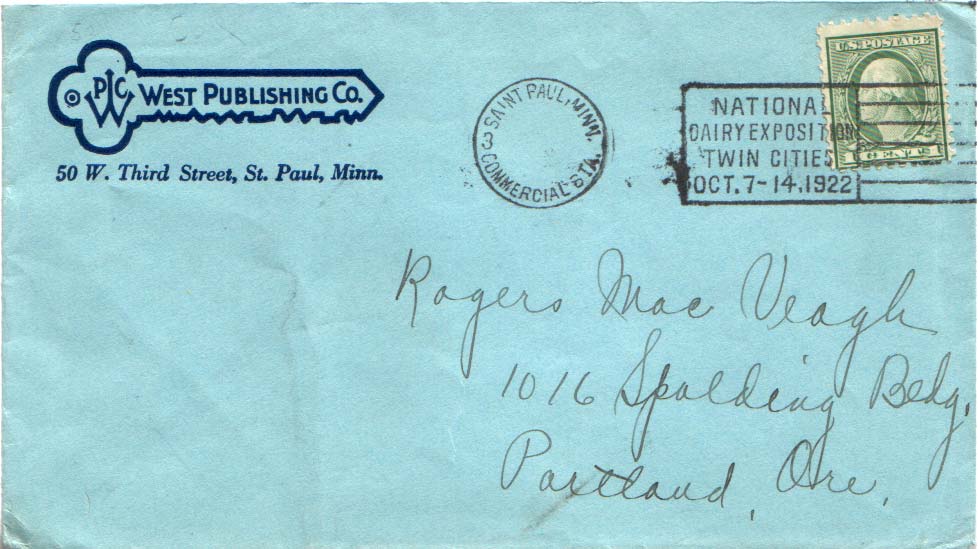 PWC WEST PUBLISHING CO.
50 W. Third Street, St. Paul, Minn.
SAINT PAUL, MINN.
3
COMMERCIAL STA.
NATIONAL
DAIRY EXPOSITION
TWIN CITIES
OCT. 7-14, 1922
U.S. POSTAGE
1 CENT 1
Rogers Mac Veagh
1016 Spalding Bldg.
Portland, Ore.